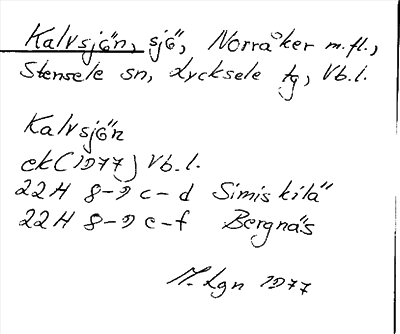 Kalvsjön, sjö, Norråker m.fl.,
Stensele sn, Lycksele tg, Vb.l.
Kalvsjön
ek (1977) Vb.l.
22H 8-9 c-d Simiskilä
22H 8-9 e-f Bergnäs
M. Lgn 1977